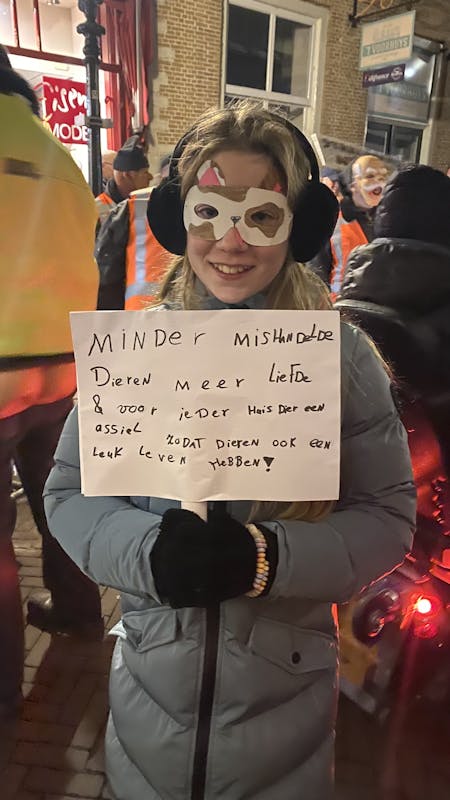 MINDER MISHANDELDE
DIEREN MEER LIEFDE
& voor jeder Huisdier een
assiel zoDAT Dieren ook een
Leuk Leven HeBBen!
MODE
't VOORHUYS